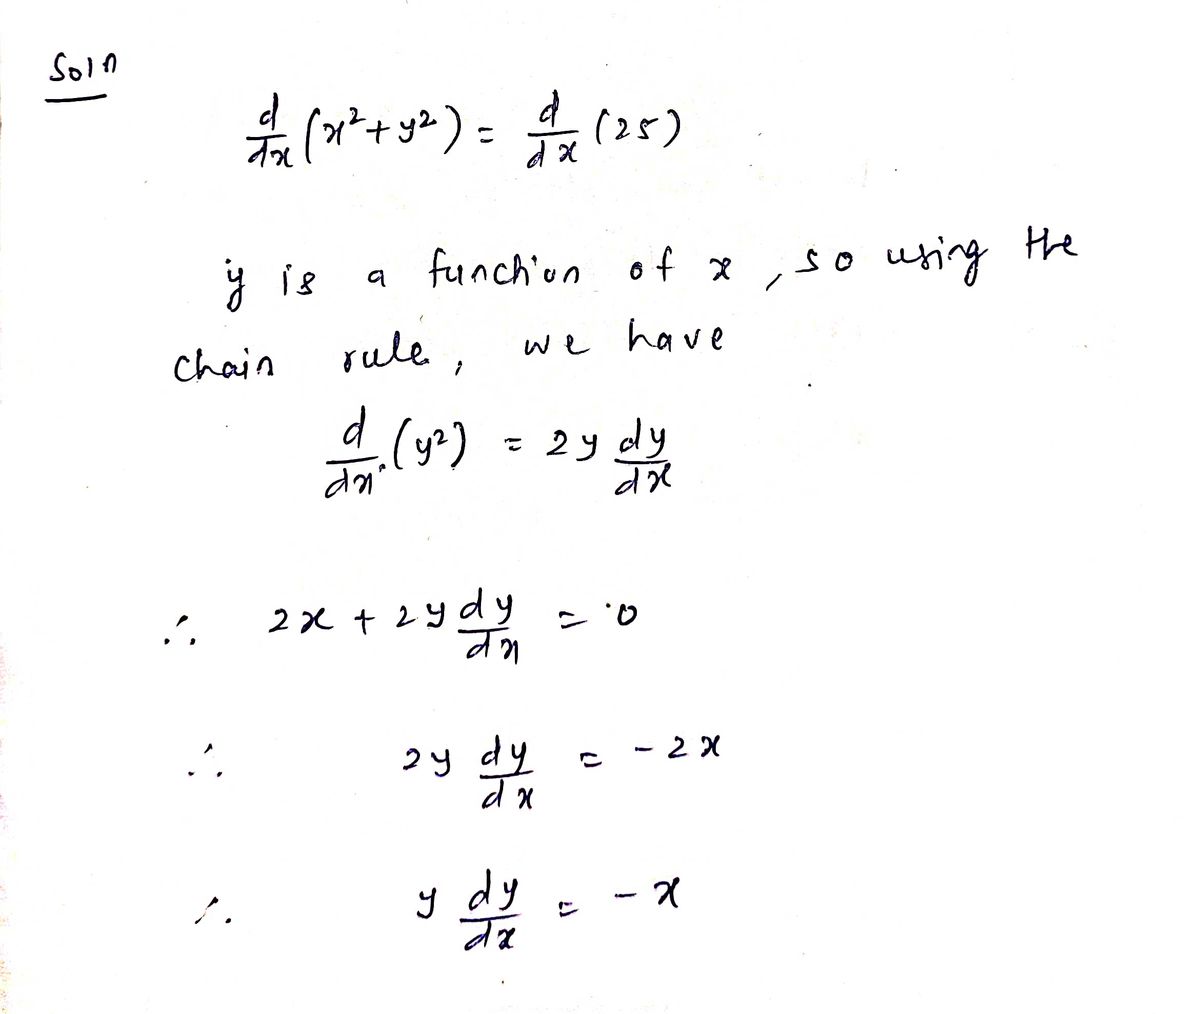 Soln
d/dx (x² + y²) = d/dx (25)
y is a function of x, so using the
chain rule, we have
d/dx (y²) = 2y dy/dx
∴ 2x + 2y dy/dx = 0
∴ 2y dy/dx = -2x
∴ y dy/dx = -x